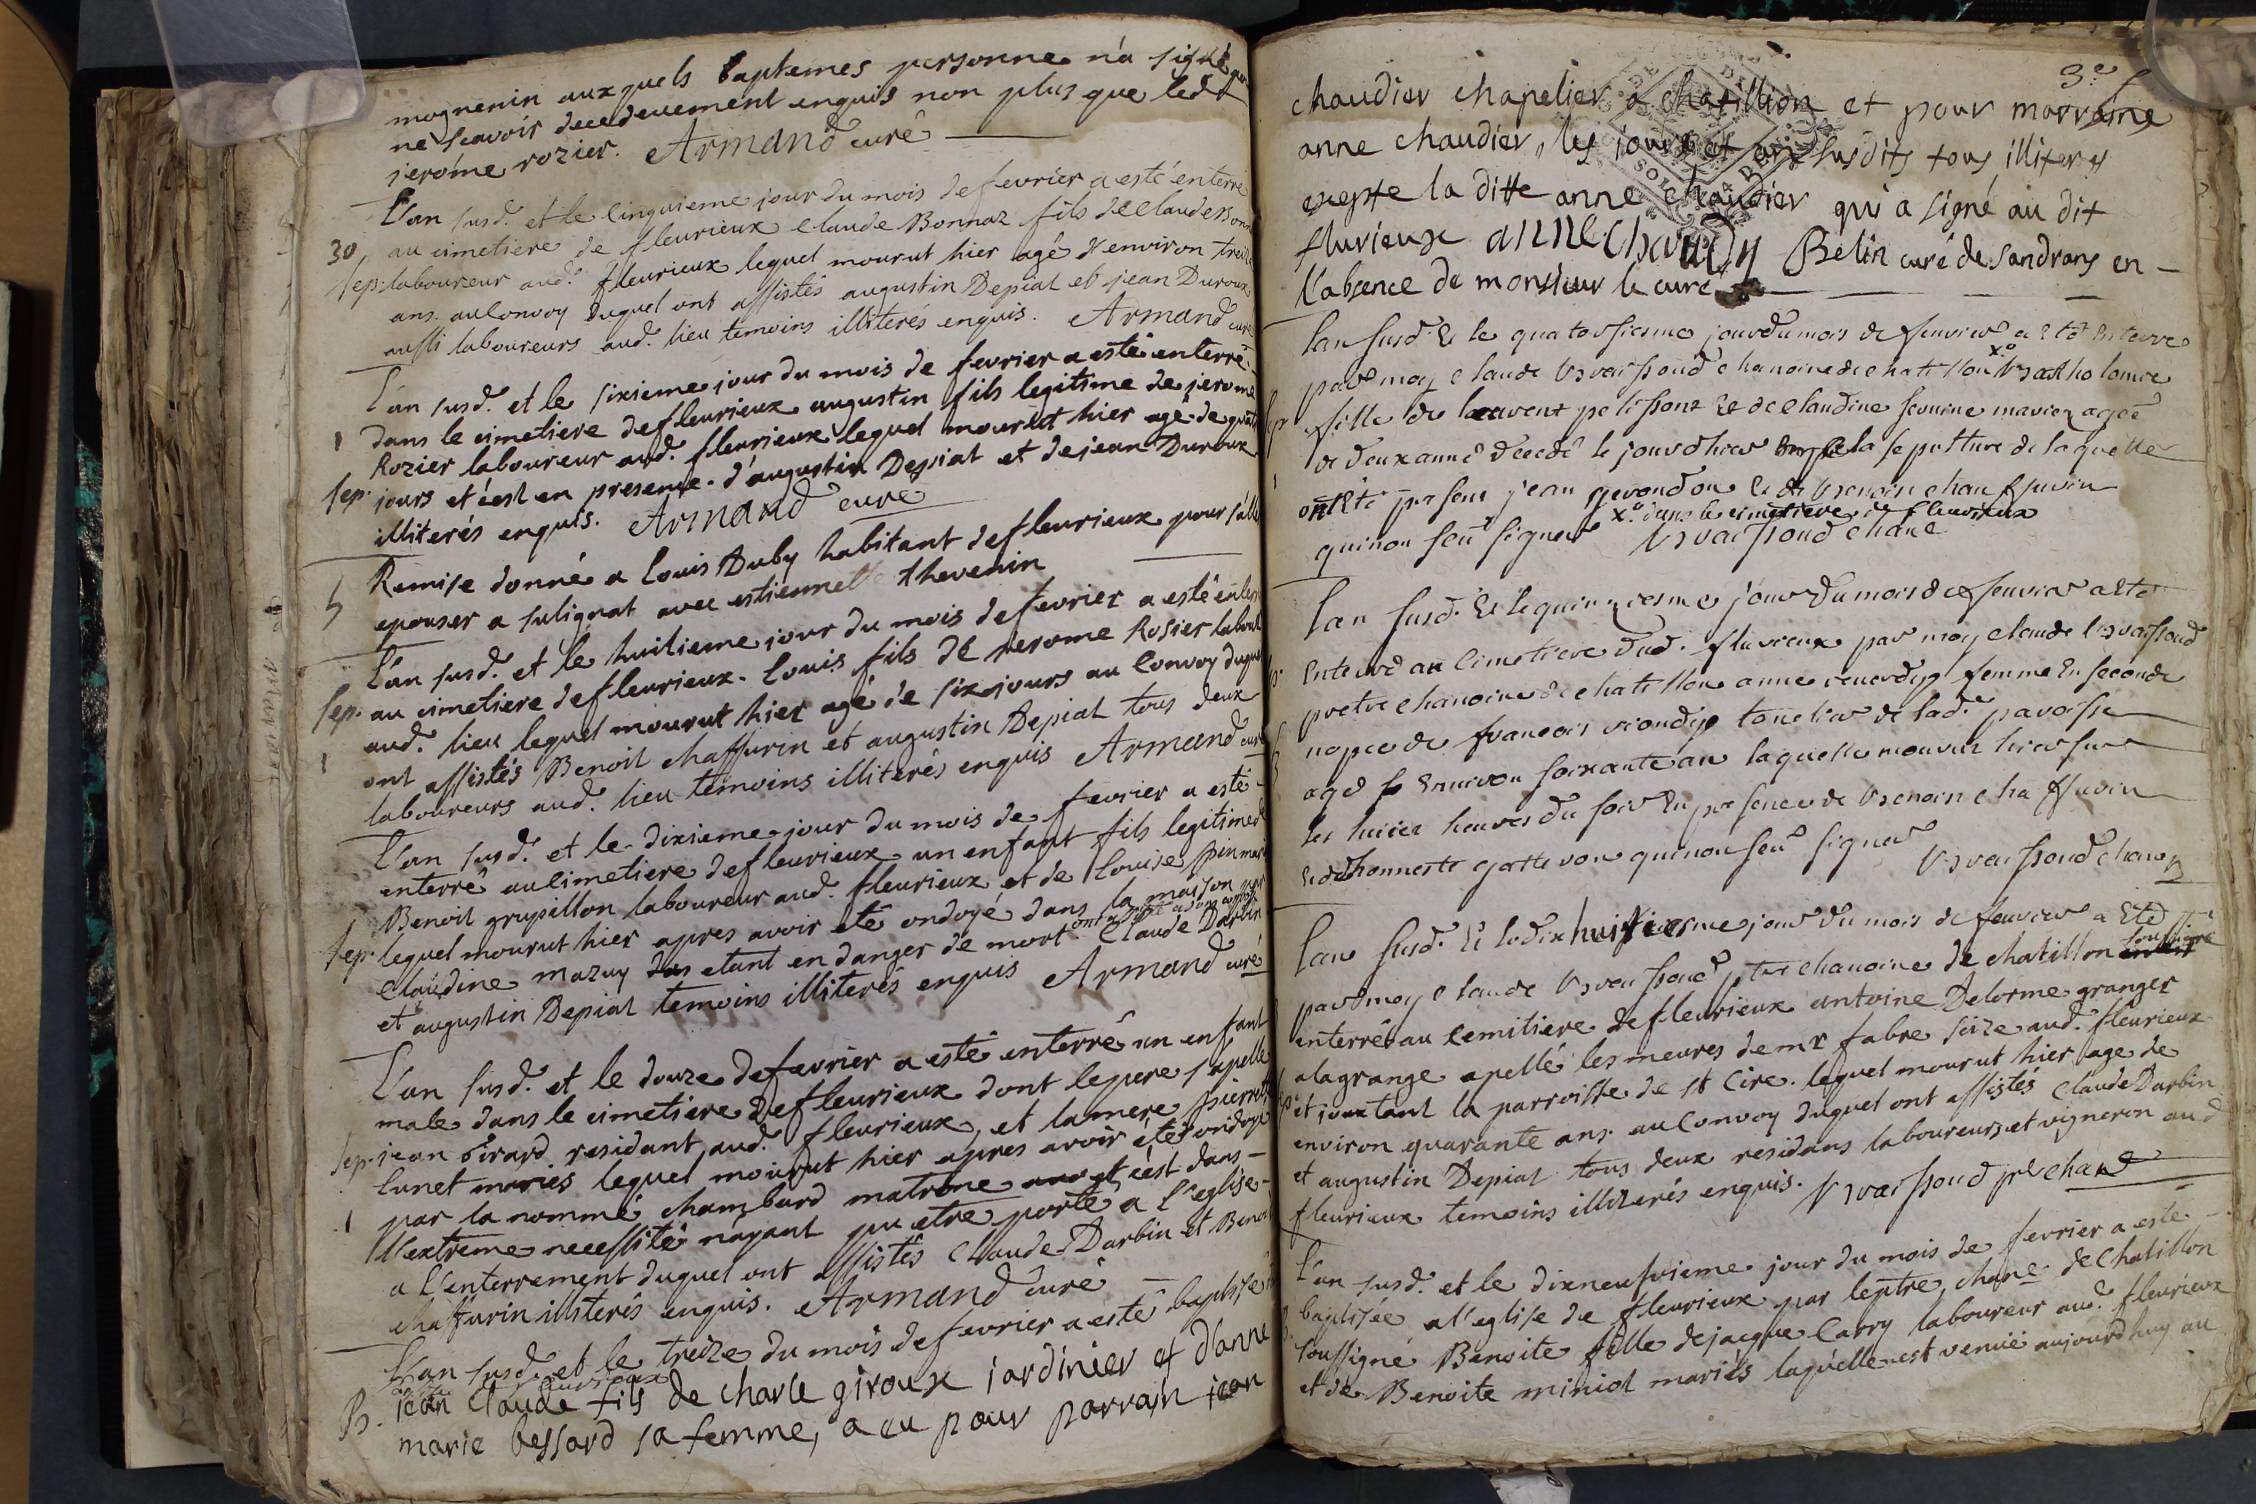 mognenin auxquels baptemes personne n'a signé pour
ne scavoir de ce deuement enquis non plus que led.t
jerome rozier. Armand curé
L'an susd. et le cinquieme jour du mois de fevrier a esté enterré
30 au cimetiere de fleurieux Claude Bonnaz fils de Claude Bonn
sep. laboureur aud. fleurieux lequel mourut hier agé d'environ treize
ans. au Convoy duquel ont assistés augustin Depiat et jean Duroux
aussi laboureurs aud. lieu temoins illiterés enquis. Armand curé
L'an susd. et le sixieme jour du mois de fevrier a esté enterré
1 dans le cimetiere de fleurieux augustin fils legitime de jerome
Rozier laboureur aud. fleurieux lequel mourut hier agé de quatre
sep. jours et c'est en presence d'augustin Depiat et de jean Duroux
illiterés enquis. Armand curé
Remise donné a Louis Duby habitant de fleurieux pour s'aller
epouser a sulignat avec estiennette thevenin
L'an susd. et le huitieme jour du mois de fevrier a esté enterré
sep. au cimetiere de fleurieux. Louis fils de jerome Rosier labou
1 aud. lieu lequel mourut hier agé de six jours au Convoy duquel
ont assistés Benoit chaffurin et augustin Depiat tous deux
laboureurs aud. lieu temoins illiterés enquis Armand curé
L'an susd. et le dixieme jour du mois de fevrier a esté
enterré au Cimetiere de fleurieux un enfant fils legitime de
Benoit grupillon laboureur aud. fleurieux et de Louise pin mari
sep. lequel mourut hier apres avoir eté ondoyé dans la maison par
Claudine mazuy etant en danger de mort. ont Claude Darbin
et augustin Depiat temoins illiterés enquis Armand curé
L'an susd. et le douze de fevrier a esté enterré un enfant
male dans le cimetiere de fleurieux dont le pere s'apelle
sep. jean Girard residant aud. fleurieux, et la mere pierrette
Lunet mariés lequel mourut hier apres avoir été ondoyé
1 par la nommé chambard matrone et c'est dans
l'extreme necessité n'ayant pu etre porté a l'eglise
a l'enterrement duquel ont assistés Claude Darbin et Benoi
chaffurin illiterés enquis. Armand curé
L'an susd. et le treize du mois de fevrier a esté baptisé
B. jean Claude fils de charle giroux jardinier et d'anne
marie bessard sa femme, a eu pour parrain jean
3.e
chaudier chapelier a chatillion et pour marraine
anne chaudier, les jours et an susdits tous illiterés
exepte la ditte anne chaudier qui a signé au dit
flurieux anne chaudy Belin curé de Sandrans en
l'absence de monsieur le curé
lan susd. & le quatorsiesme jour du mois de feuvier a ete enterre
par moy claude Bvaissoud chanoine de chatillon x.o Bartholomee
fille de laurent pelissont & de claudine mariez agee
de deux anné decedé le jour d'hier la sepulture de laquelle
ont été presens jean gerondon & de Benoist chauffurin
x.o dans le cimetiere de fleurieux
qui non seu signer Bvaissoud chane
lan susd. & le quinziesme jour du mois de feuvier a ete
enterré au Cimetiere dud. flurieux par moy claude Bvaissoud
pretre chanoine de chatillon anne femme en seconde
nopce de francois tonelier de lad.e paroisse
aged environ soixante an laquelle mourut hier sur
les huict heures du soir en presence de Benoist chaffurin
& d'honneste qui non seu signer Bvaissoud chane
lan susd. & le dix huistiesme jour du mois de feuvier a ete
par moy claude Bvaissoud ptre chanoine de chatillon soussigné
enterré au cemitiere de fleurieux antoine Delorme granger
a la grange apellé les meures de mr fabre size aud. fleurieux
et jouxtant la parroisse de st Cire. lequel mourut hier age de
environ quarante ans. au Convoy duquel ont assistés Claude Darbin
et augustin Depiat tous deux residans laboureurs et vigneron aud
fleurieux temoins illiterés enquis. Bvaissoud ptre chane
L'an susd. et le dixneufvieme jour du mois de fevrier a esté
baptisée a l'eglise de fleurieux par le ptre, chane de Chatillon
soussigné Benoite fille de jacque Carry laboureur aud. fleurieux
et de Benoite miniot mariés laquelle est venüe aujourdhuy au